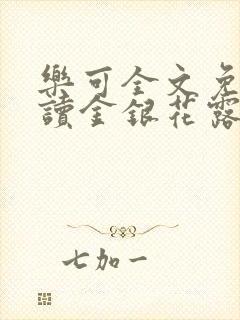 樂可全文免
讀金銀花露
七加一